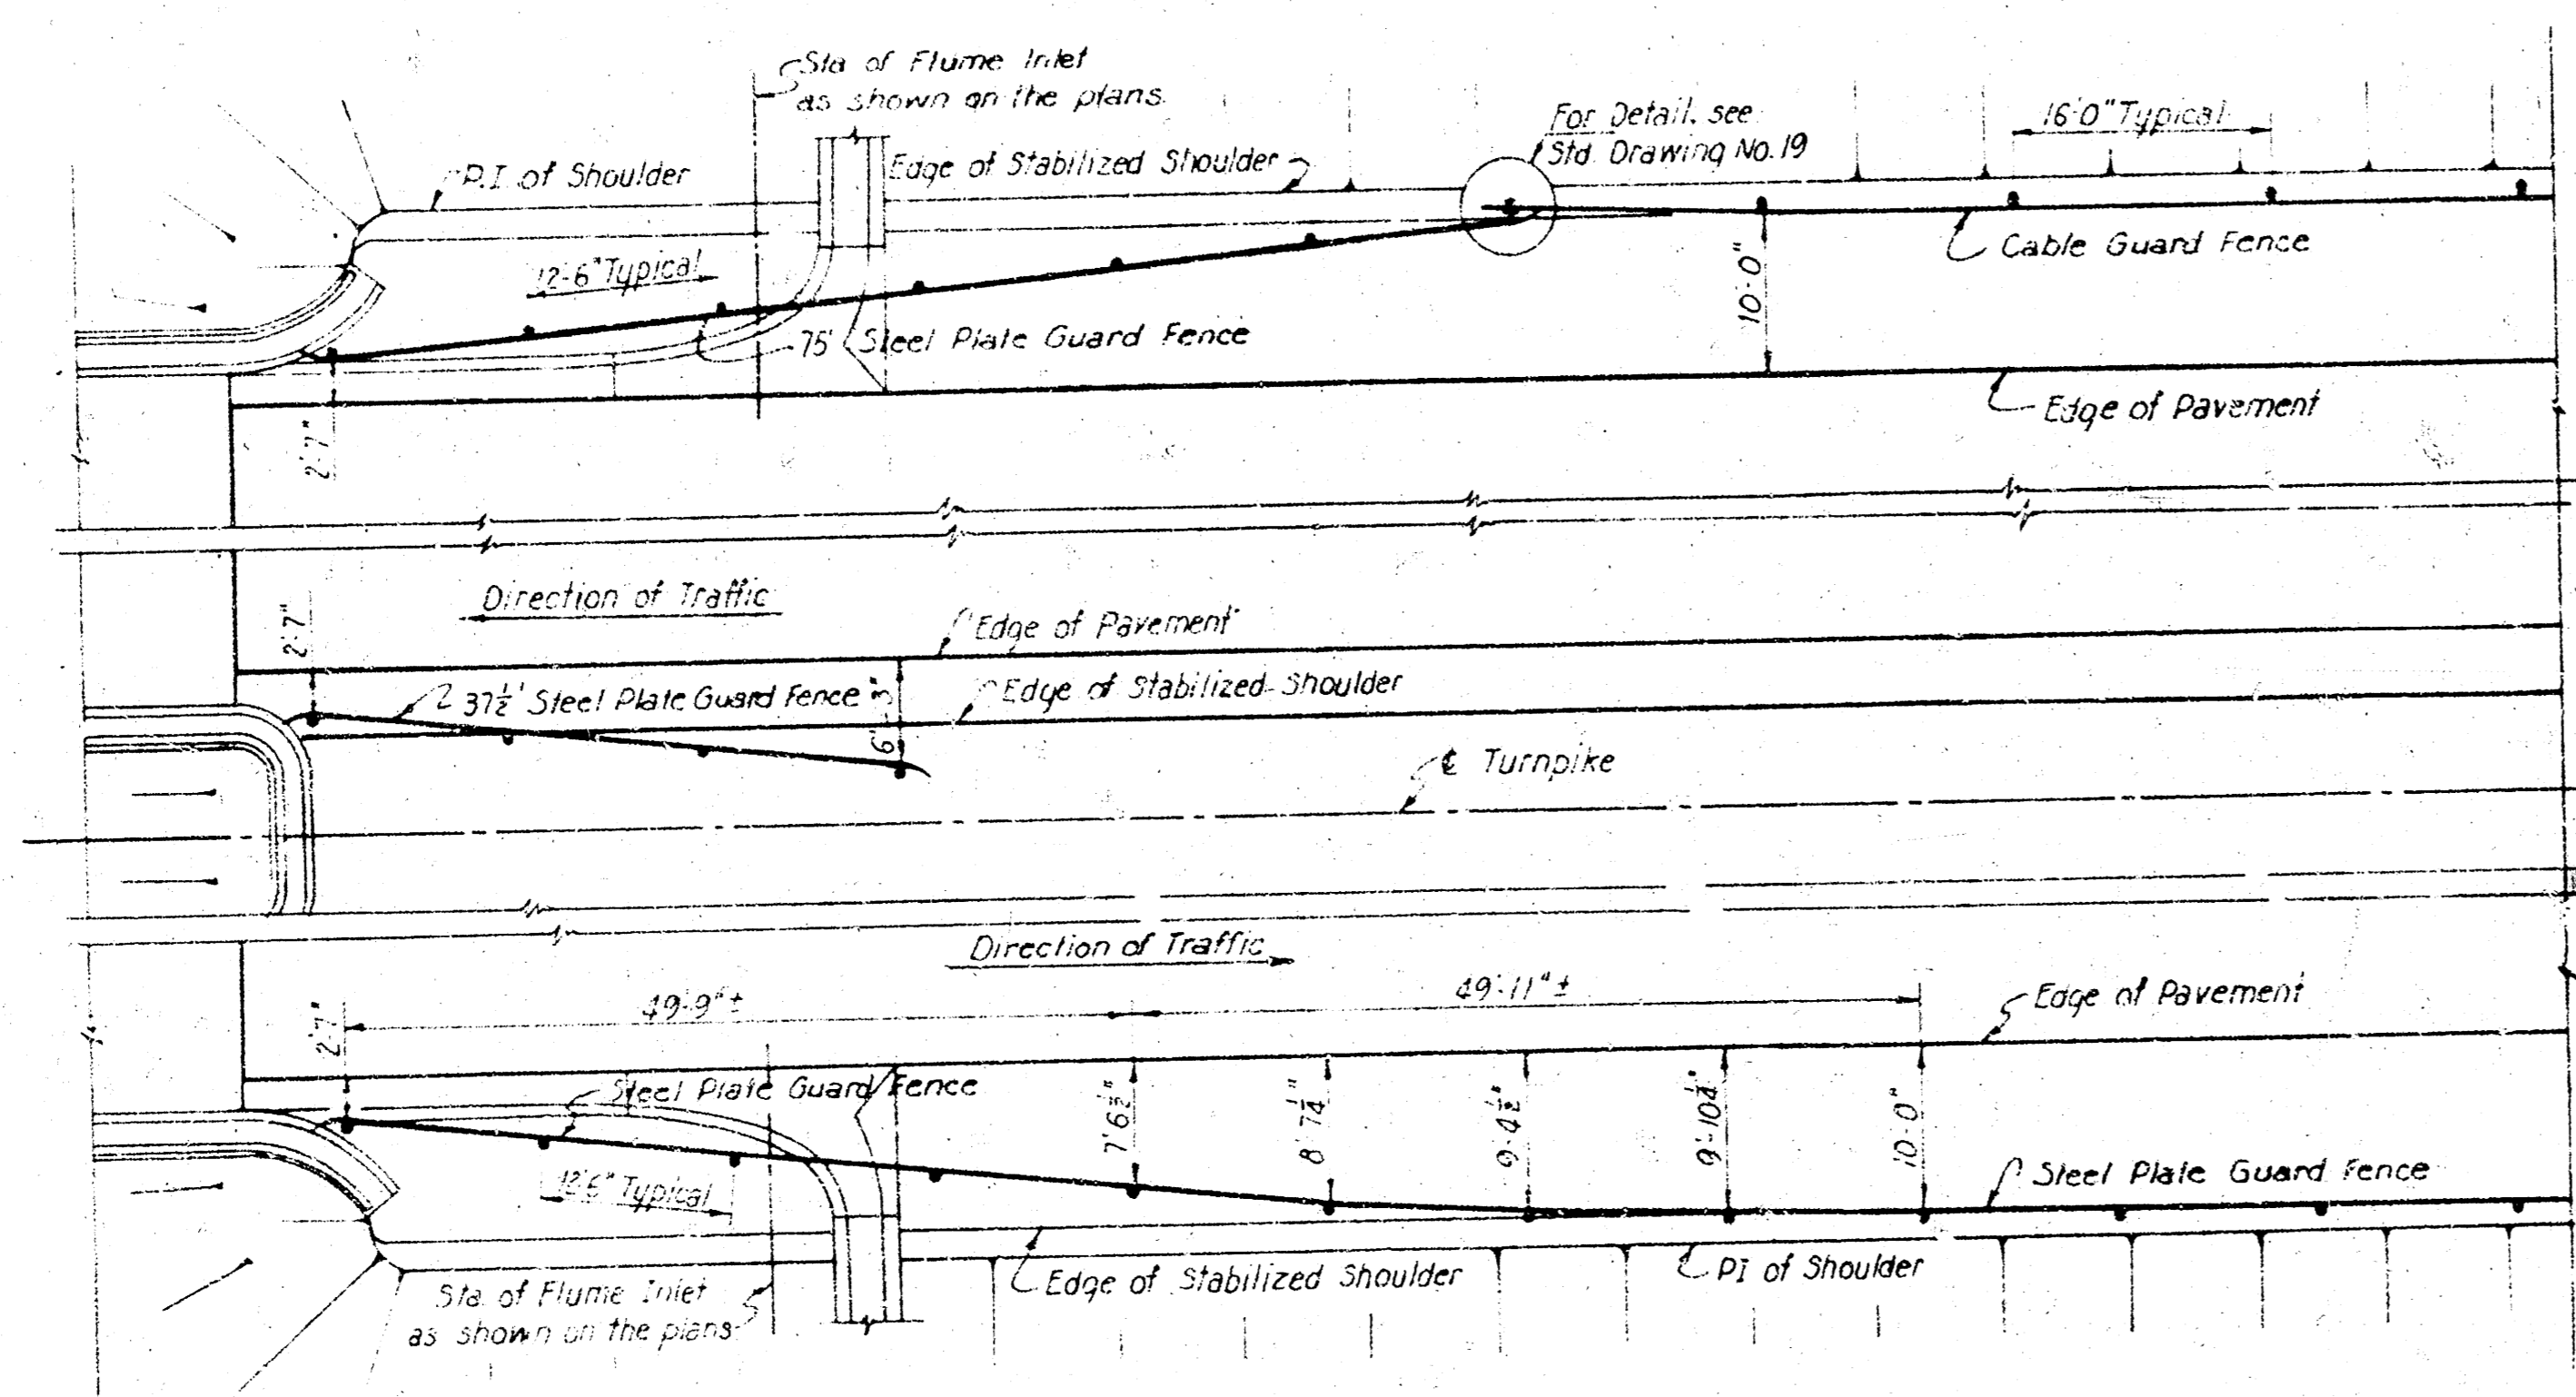 Sta of Flume Inlet
as shown on the plans.
For Detail. see
Std. Drawing No. 19
16'-0" Typical
P.I. of Shoulder
Edge of Stabilized Shoulder
Cable Guard Fence
12'-6" Typical
10'-0"
75' Steel Plate Guard Fence
Edge of Pavement
2'-7"
Direction of Traffic
2'-7"
Edge of Pavement
37½' Steel Plate Guard Fence
6'-3"
Edge of Stabilized Shoulder
℄ Turnpike
Direction of Traffic
49'-9" ±
49'-11" ±
Edge of Pavement
2'-7"
Steel Plate Guard Fence
7'6½"
8' 7¼"
9'-4½"
9'-10¼"
10'-0"
12'6" Typical
Steel Plate Guard Fence
Edge of Stabilized Shoulder
PI of Shoulder
Sta. of Flume Inlet
as shown on the plans